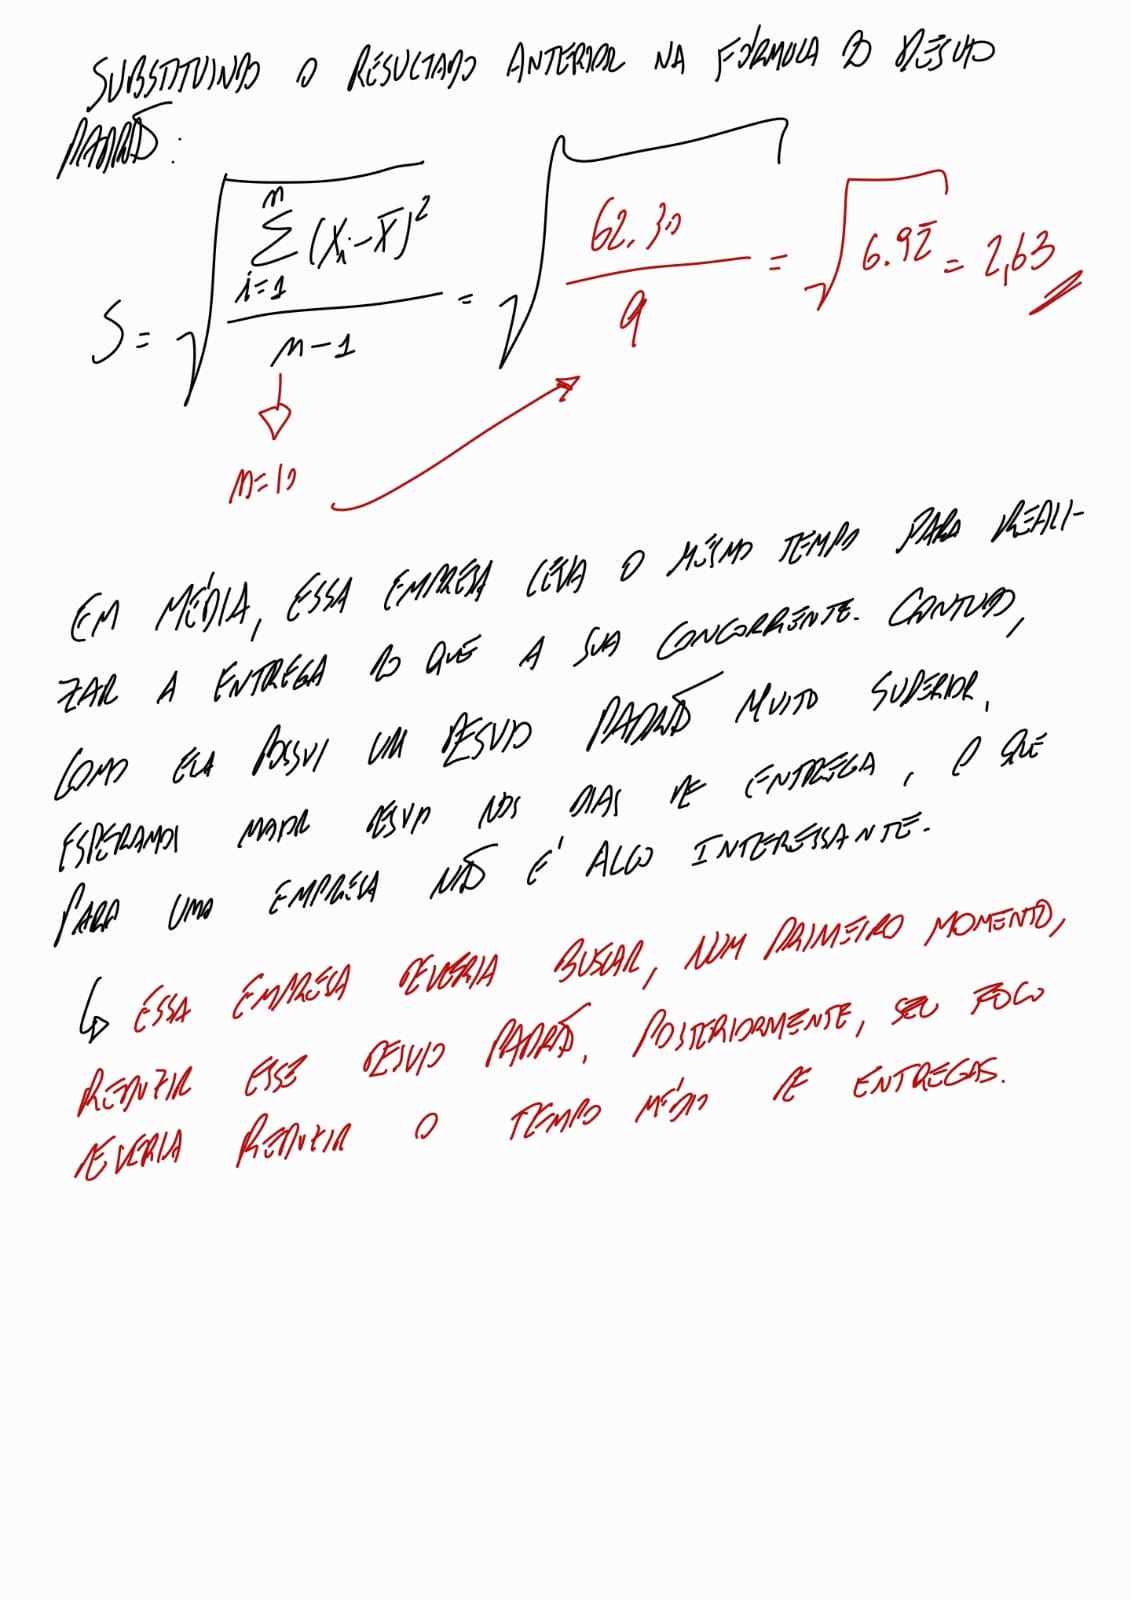 SUBSTITUINDO O RESULTADO ANTERIOR NA FÓRMULA DO DESVIO
PADRÃO:
S = √(∑_{i=1}^{n} (Xi - X̄)² / n-1) = √(62.30 / 9) = √6.92 = 2,63
n=10
EM MÉDIA, ESSA EMPRESA LEVA O MESMO TEMPO PARA REALI-
ZAR A ENTREGA DO QUE A SUA CONCORRENTE. CONTUDO,
COMO ELA POSSUI UM DESVIO PADRÃO MUITO SUPERIOR,
ESPERAMOS MAIOR DESVIO NOS DIAS DE ENTREGA, O QUE
PARA UMA EMPRESA NÃO É ALGO INTERESSANTE.
↳ ESSA EMPRESA DEVERIA BUSCAR, NUM PRIMEIRO MOMENTO,
REDUZIR ESSE DESVIO PADRÃO. POSTERIORMENTE, SEU FOCO
DEVERIA REDUZIR O TEMPO MÉDIO DE ENTREGAS.